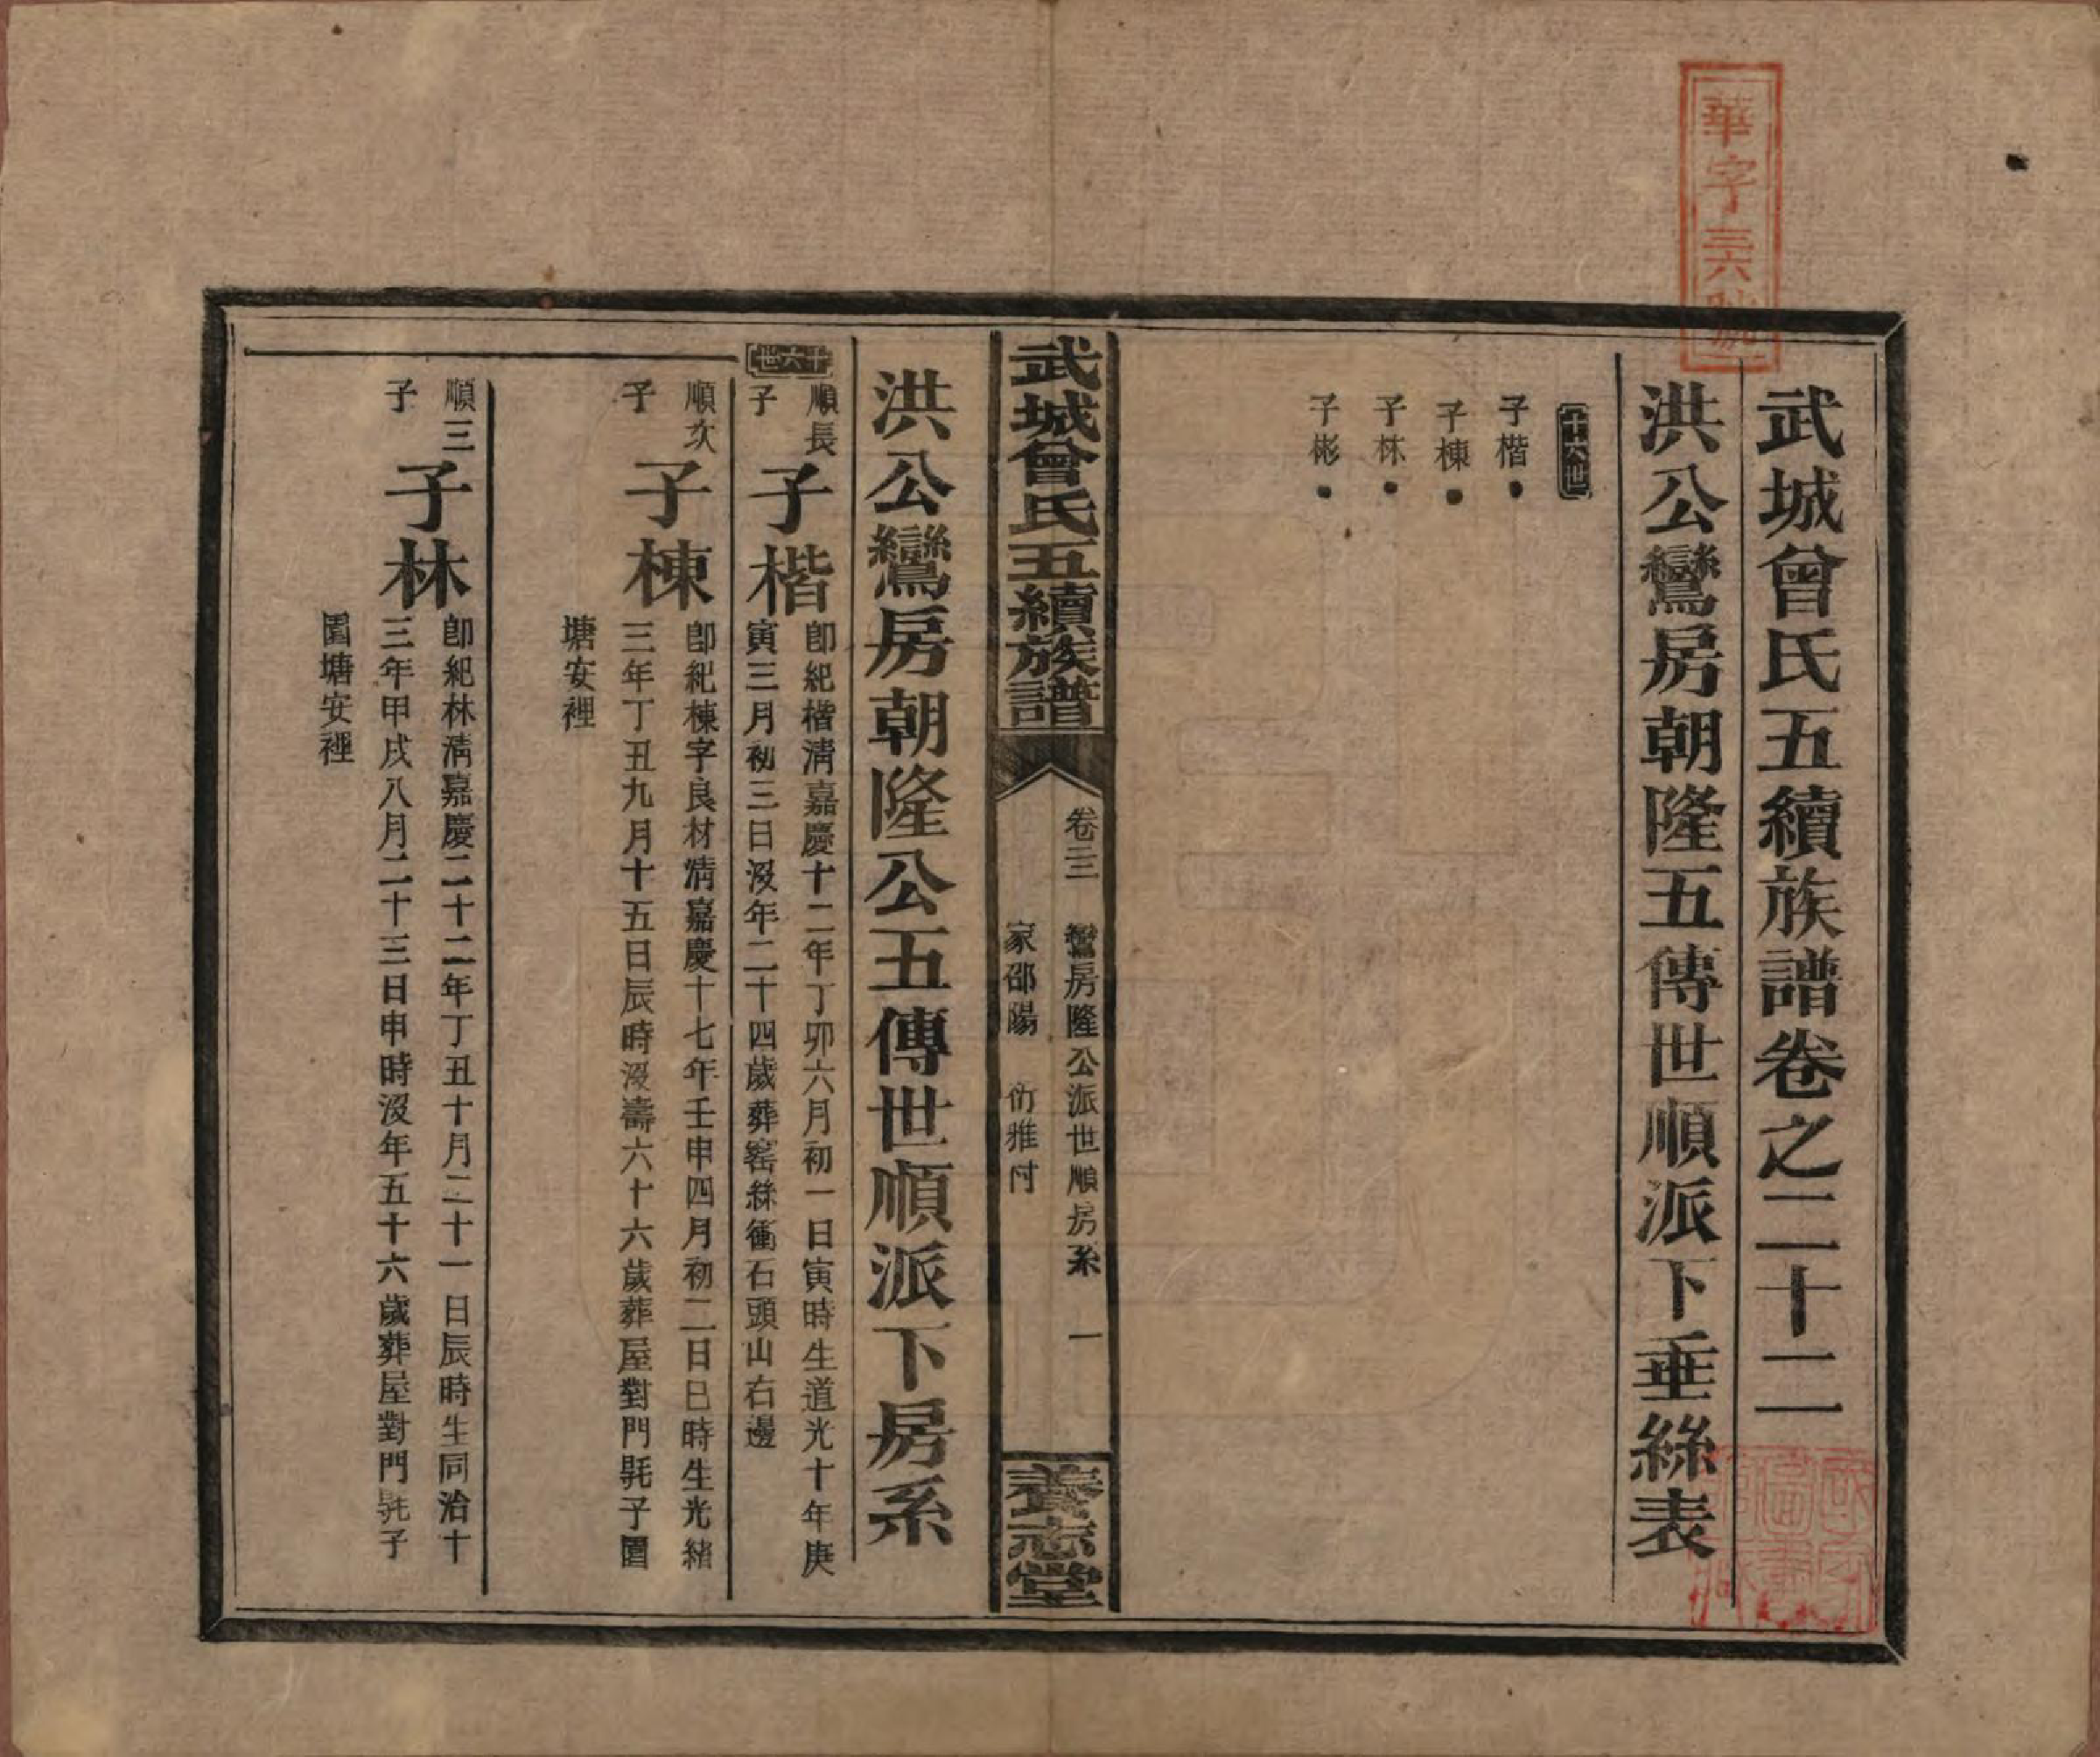 華字三六號
武城曾氏五續族譜卷之二十二
洪公鸞房朝隆五傳世順派下垂絲表
十六世
子楷
子棟
子林
子彬
武城曾氏五續族譜
卷二二
鸞房隆公派世順房系
一
家邵陽
衍雅付
養志堂
洪公鸞房朝隆公五傳世順派下房系
十六世
順長
子
子楷
卽紀楷淸嘉慶十二年丁卯六月初一日寅時生道光十年庚
寅三月初三日沒年二十四歲葬窰絲衝石頭山右邊
順次
子
子棟
卽紀棟字良材淸嘉慶十七年壬申四月初二日巳時生光緒
三年丁丑九月十五日辰時沒壽六十六歲葬屋對門毦子園
塘安裡
順三
子
子林
卽紀林淸嘉慶二十二年丁丑十月二十一日辰時生同治十
三年甲戌八月二十三日申時沒年五十六歲葬屋對門毦子
園塘安裡